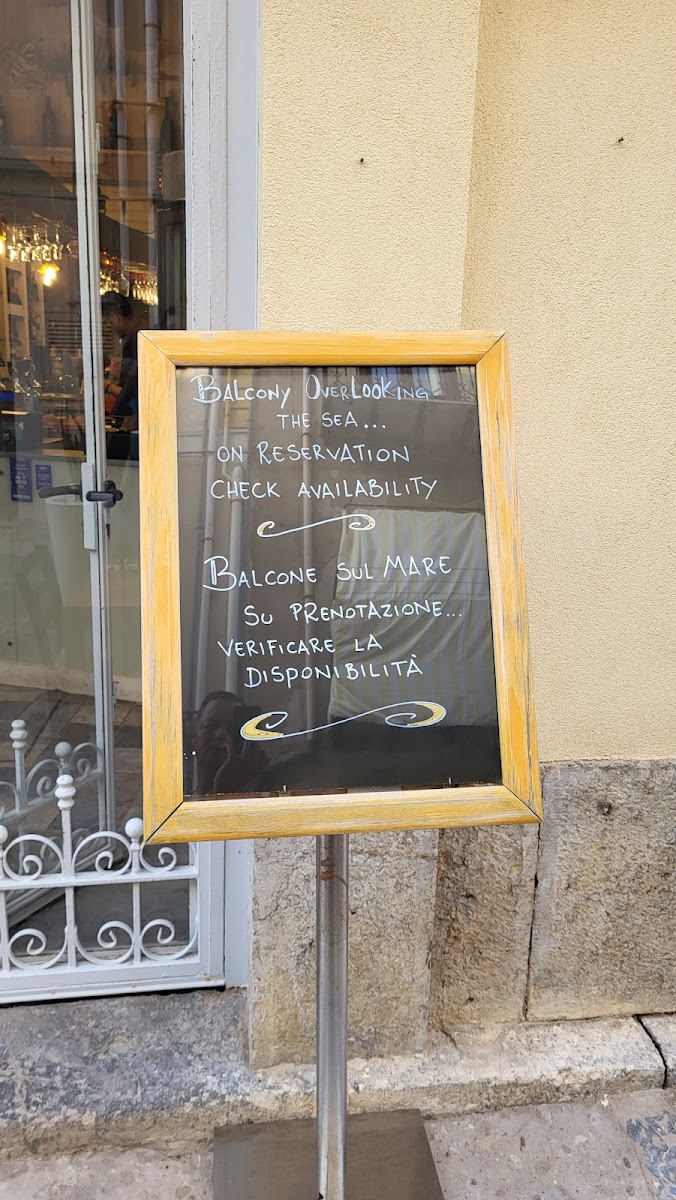 BALCONY OVERLOOKING
THE SEA...
ON RESERVATION
CHECK AVAILABILITY
BALCONE SUL MARE
SU PRENOTAZIONE...
VERIFICARE LA
DISPONIBILITÀ